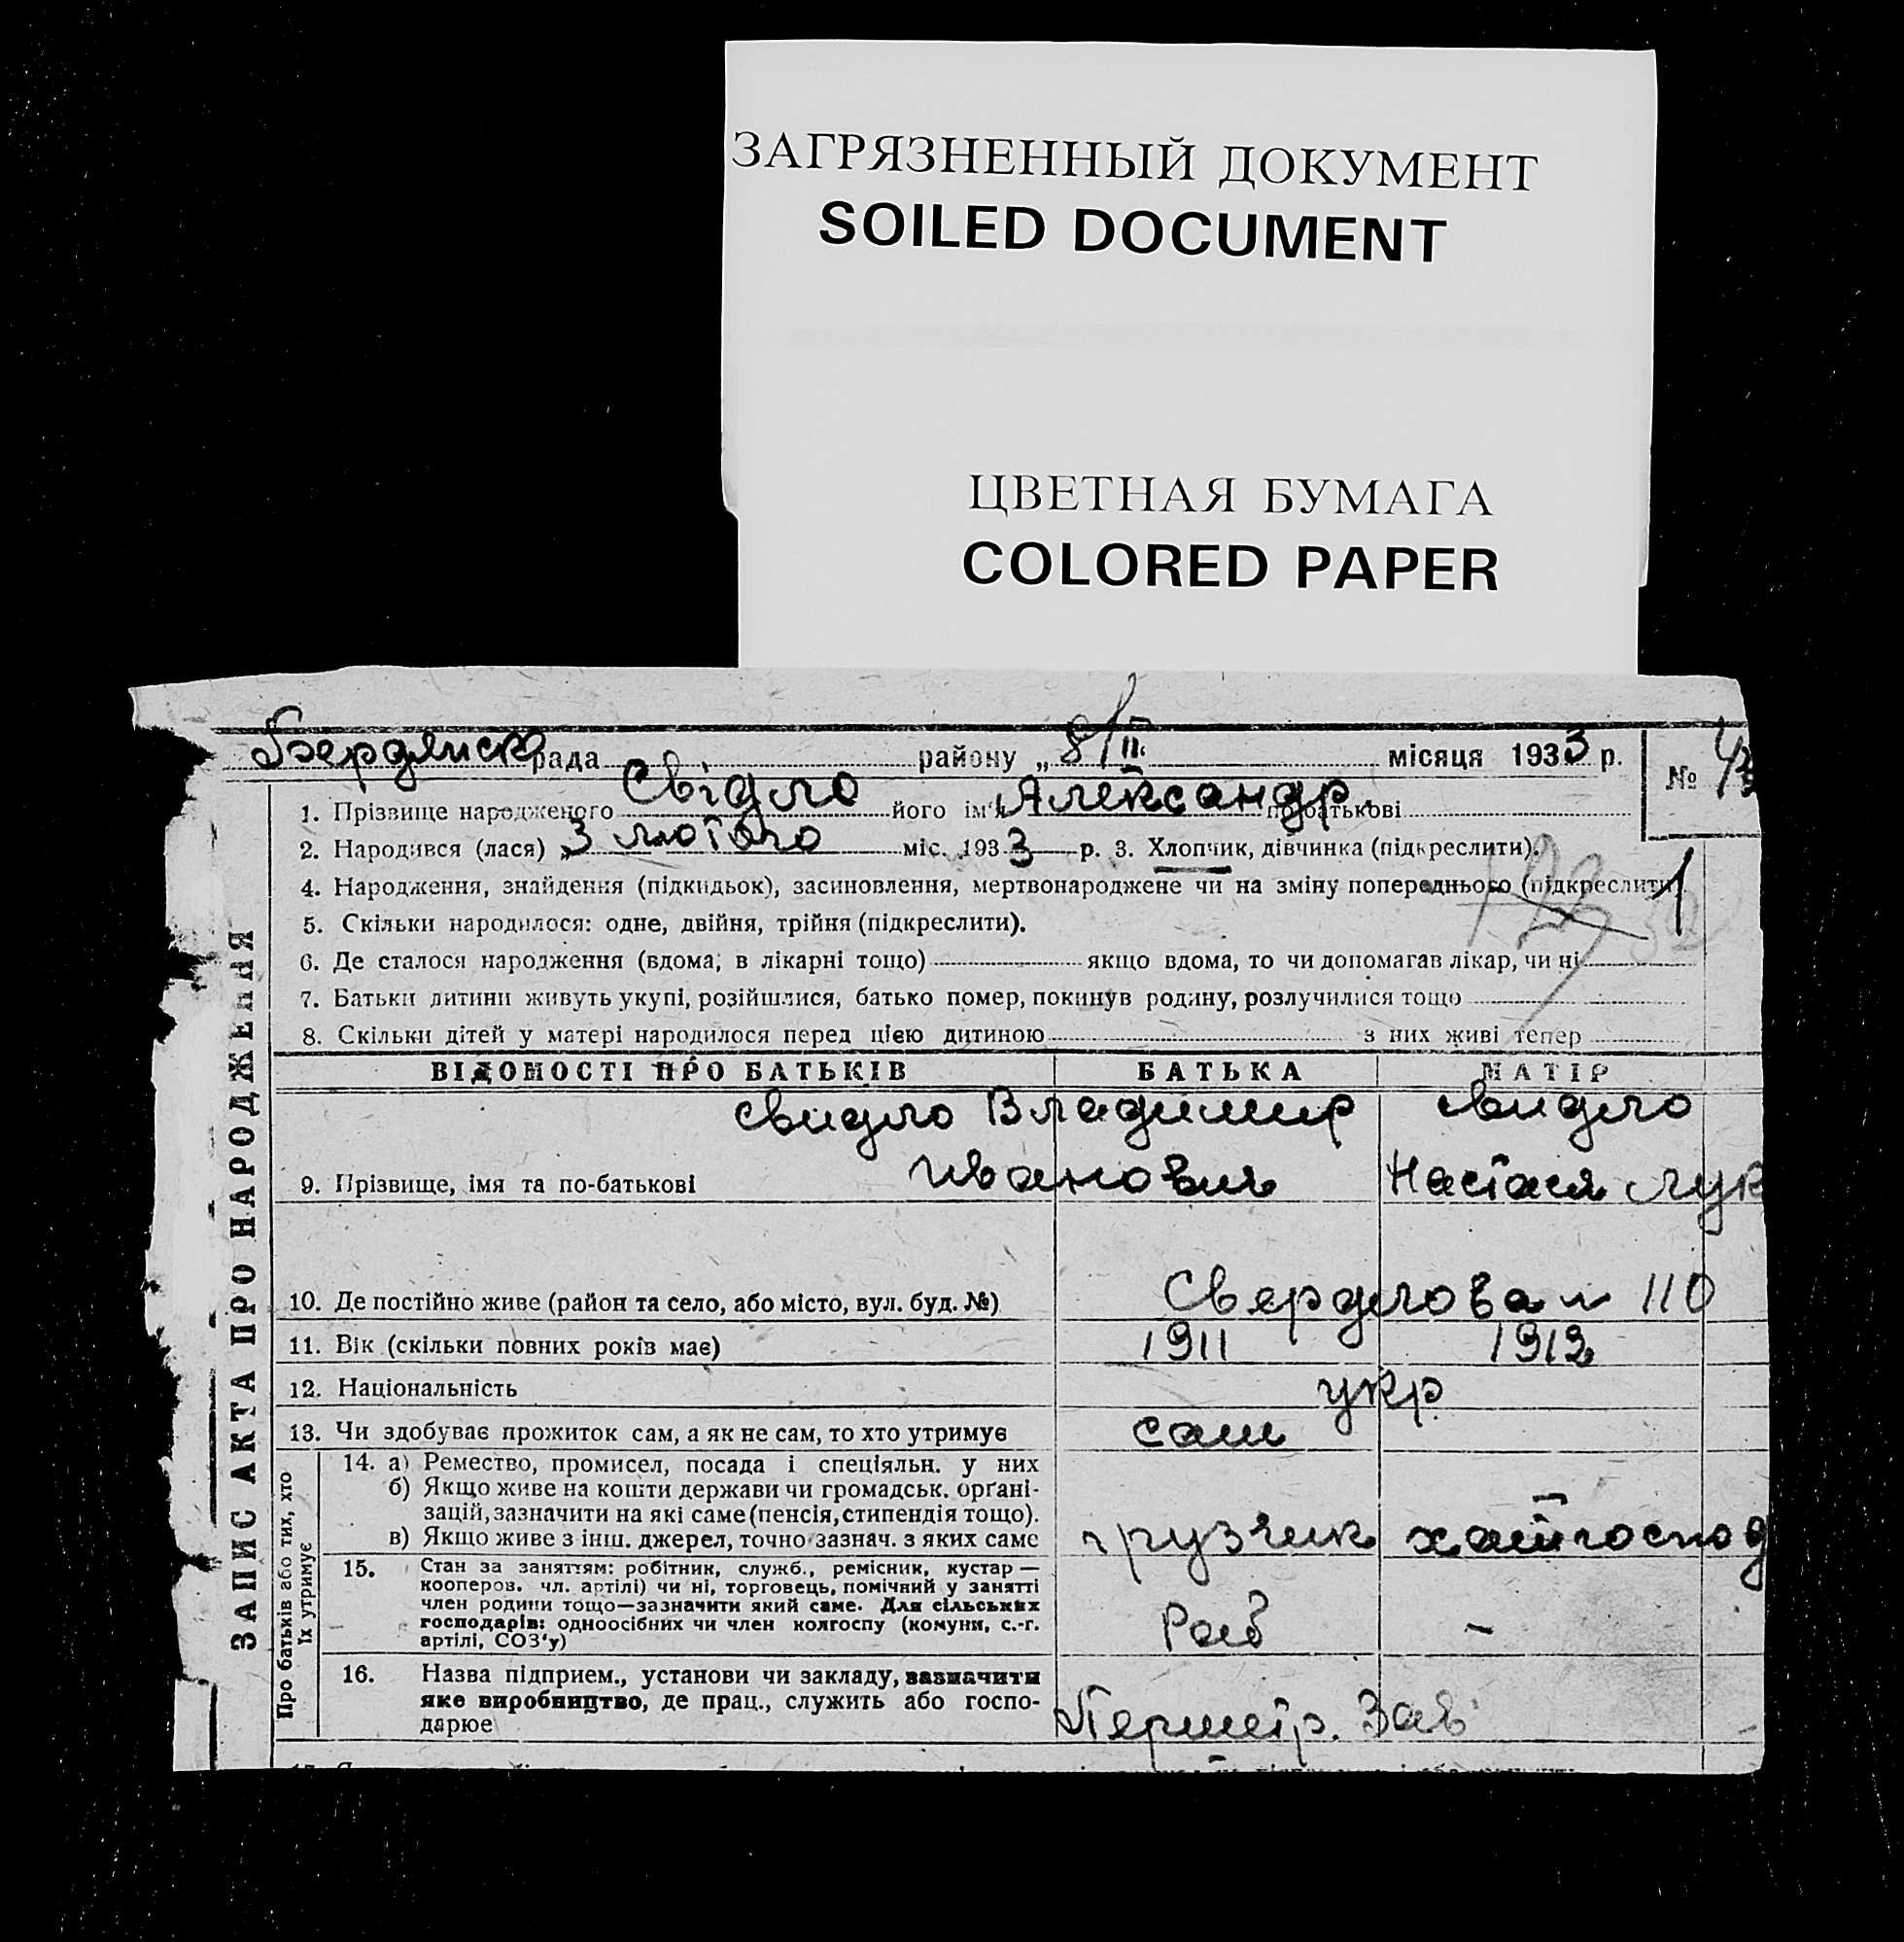 ЗАГРЯЗНЕННЫЙ ДОКУМЕНТ
SOILED DOCUMENT
ЦВЕТНАЯ БУМАГА
COLORED PAPER
Бердянск рада району „ 8/II місяця 1933 р. №
1. Прізвище народженого Свідло його ім'я Александр по батькові
2. Народився (лася) „ 3 лютого міс. 1933 р. 3. Хлопчик, дівчинка (підкреслити).
4. Народження, знайдення (підкидьок), засиновлення, мертвонароджене чи на зміну попереднього (підкреслити). 1
5. Скільки народилося: одне, двійня, трійня (підкреслити).
6. Де сталося народження (вдома, в лікарні тощо) якщо вдома, то чи допомагав лікар, чи ні
7. Батьки дитини живуть укупі, розійшлися, батько помер, покинув родину, розлучилися тощо
8. Скільки дітей у матері народилося перед цією дитиною з них живі тепер
ЗАПИС АКТА ПРО НАРОДЖЕННЯ
ВІДОМОСТІ ПРО БАТЬКІВ БАТЬКА МАТІР
Свидло Владимир Свидло
9. Прізвище, імя та по-батькові Иванович Настася Лук
10. Де постійно живе (район та село, або місто, вул. буд. №) Свердлова 110
11. Вік (скільки повних років має) 1911 1912
12. Національність укр
13. Чи здобуває прожиток сам, а як не сам, то хто утримує сам
Про батьків або тих, хто
їх утримує
14. а) Ремество, промисел, посада і спеціяльн. у них
б) Якщо живе на кошти держави чи громадськ. орґані-
зацій, зазначити на які саме (пенсія, стипендія тощо).
в) Якщо живе з інш. джерел, точно зазнач. з яких саме грузчик хатгоспод
15. Стан за заняттям: робітник, служб., ремісник, кустар —
кооперов. чл. артілі) чи ні, торговець, помічний у занятті
член родини тощо—зазначити який саме. Для сільських
господарів: одноосібних чи член колгоспу (комуни, с.-г.
артілі, СОЗ'у) Раб -
16. Назва підприєм., установи чи закладу, зазначити
яке виробництво, де прац., служить або госпо-
дарює Первметр. Зав